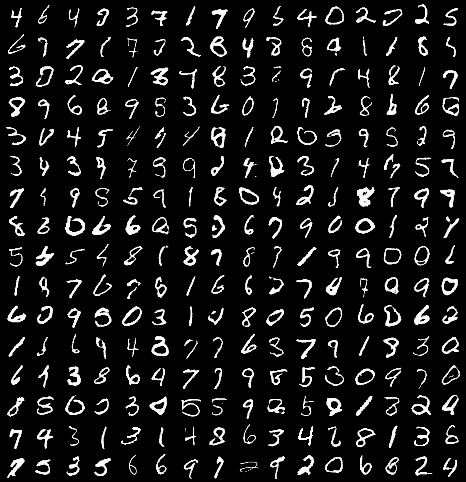 4 6 4 9 3 7 1 7 9 5 4 0 2 0 2 5
6 9 7 1 7 2 8 4 8 8 9 1 1 8 5
3 0 2 0 1 8 7 8 3 9 4 8 1 7
8 9 6 8 9 5 3 6 0 1 7 2 8 6 6 0
3 0 4 5 4 4 4 8 1 2 0 9 9 5 2 9
3 4 3 9 7 9 9 2 4 2 3 1 4 7 5 7
7 1 9 8 5 9 1 8 0 4 2 1 8 7 9 9
8 8 0 6 6 0 5 0 6 7 9 0 0 1 2 4
5 5 5 4 8 1 8 7 8 7 1 9 9 0 0 6
1 8 7 6 7 8 1 6 6 2 7 4 7 0 9 0
6 0 9 5 0 3 1 4 8 0 5 0 6 0 6 2
1 6 4 4 8 7 7 6 3 7 9 1 8 3 0
6 1 3 8 6 4 7 7 9 8 5 3 0 9 7 0
8 8 0 3 0 5 5 9 2 5 0 1 8 2 9
7 4 3 1 3 1 4 8 6 3 4 2 8 1 3 8
7 5 3 5 6 6 9 7 2 9 2 0 6 8 2 4